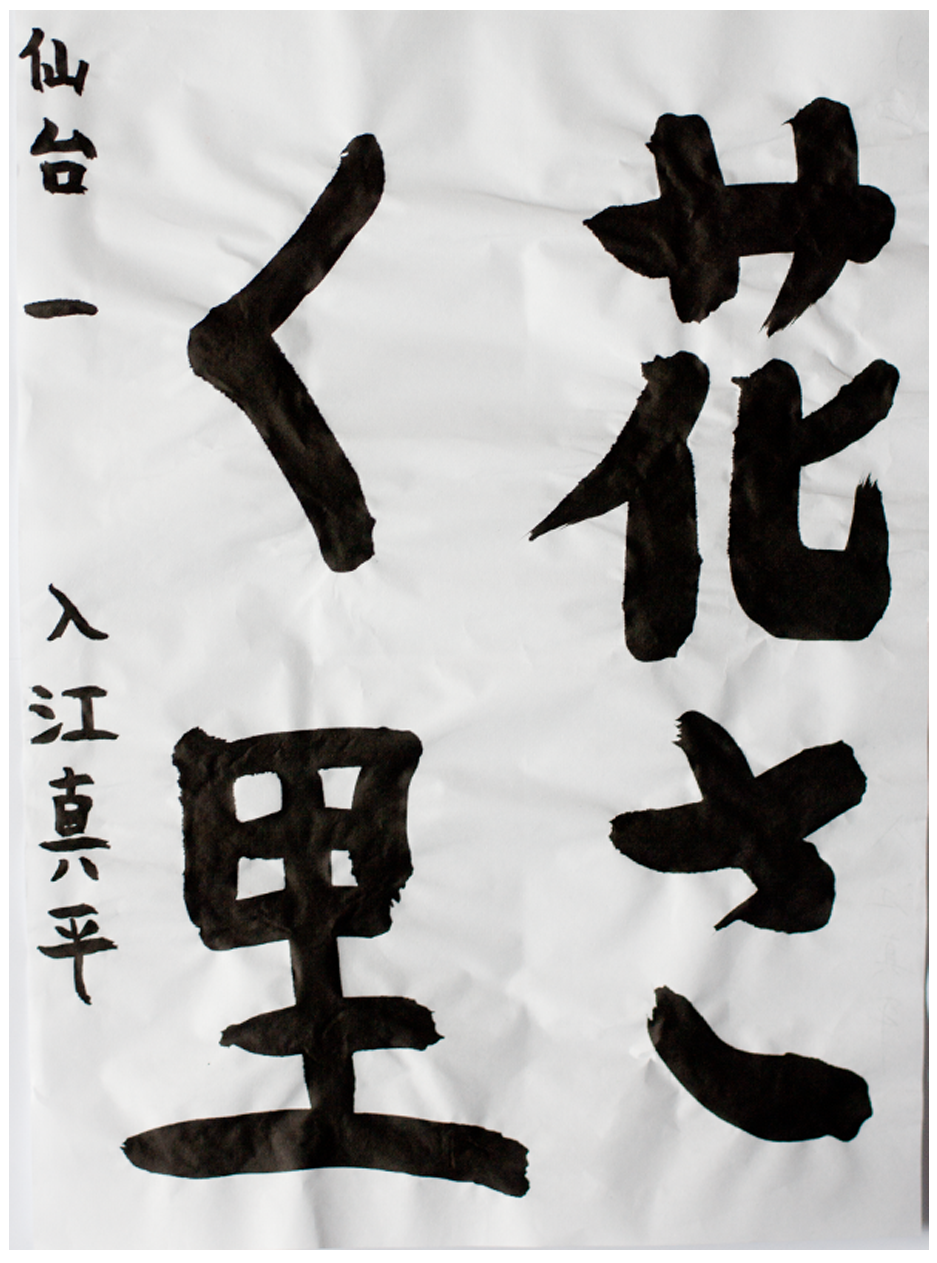 花さ
く里
仙台 一 入江真平